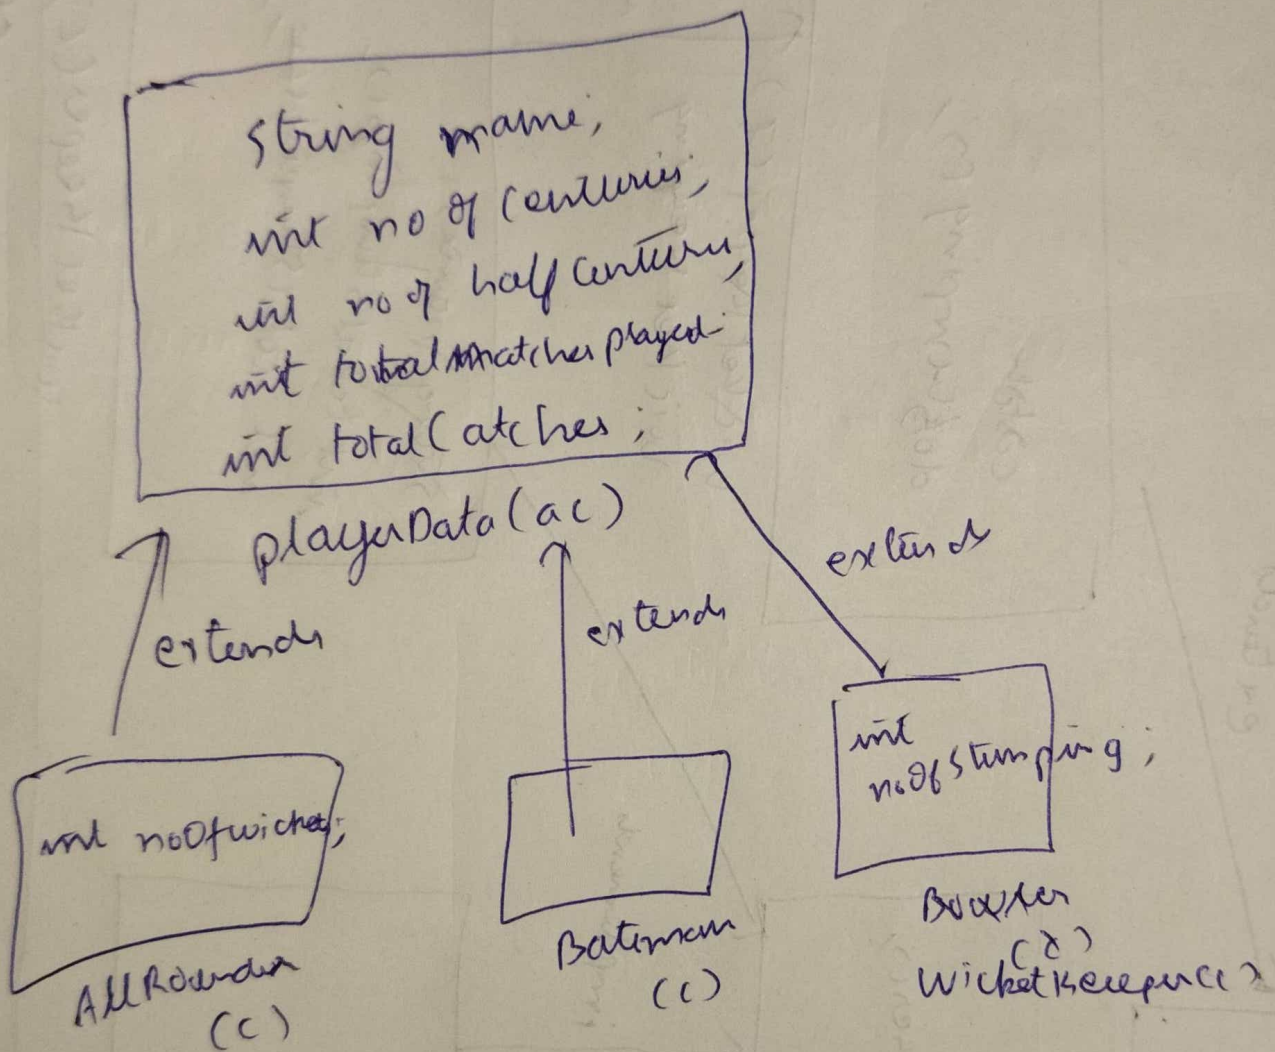 String name;
int no of centuries;
int no of half centuries,
int totalmatchesplayed
int totalCatches;
playerData(ac)
extends
extends
extends
int noOfwickets;
int
noOfStumping;
AllRounder
(c)
Batsman
(c)
Bowler
(c)
WicketKeeper(c)